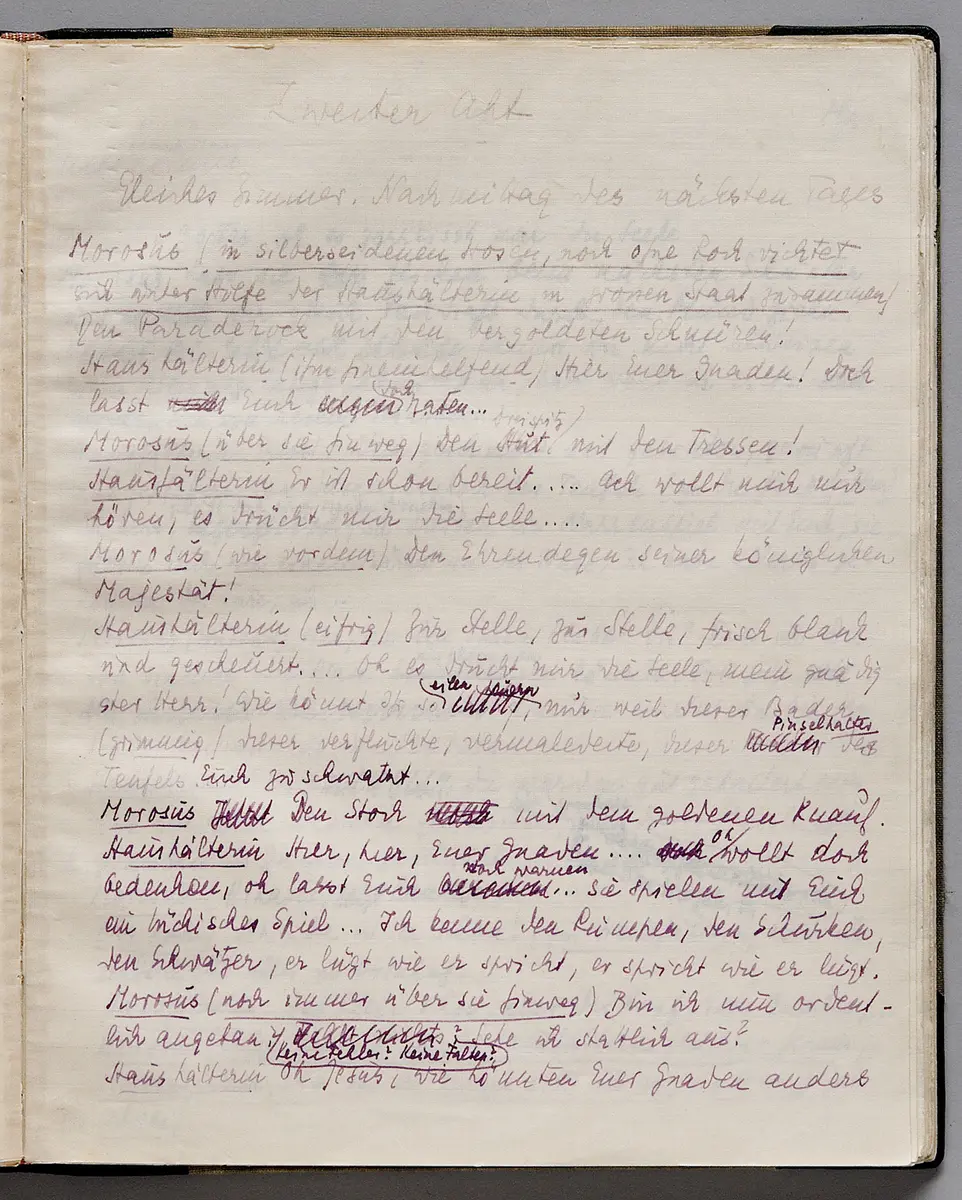 Zweiter Akt
Gleiches Zimmer. Nachmittag des nächsten Tages
Morosus (in silberseidenen Hosen, noch ohne Rock richtet
sich unter Hilfe der Haushälterin in grossen Staat zusammen)
Den Paraderock mit den vergoldeten Schnüren!
Haushälterin (ihm hineinhelfend) Hier Euer Gnaden! Doch
lasst Euch doch raten...
Dreispitz)
Morosus (über sie hinweg) Den Hut, mit den Tressen!
Haushälterin Er ist schon bereit..... Ach wollt mich nur
hören, es drückt mir die Seele....
Morosus (wie vordem) Den Ehrendegen seiner königlichen
Majestät!
Haushälterin (eifrig) Zur Stelle, zur Stelle, frisch blank
und gescheuert.... Oh es drückt mir die Seele, mein gnädig
ster Herr! Wie könnt Ihr so eilen, nur weil dieser Bader
Pinselhalter
(grimmig) dieser verfluchte, vermaledeite, dieser des
Teufels Euch zuschwatzt...
Morosus Den Stock mit dem goldenen Knauf.
Haushälterin Hier, hier, Euer Gnaden.... oh wollt doch
noch warnen
bedenken, oh lasst Euch ... Sie spielen mit Euch
ein tückisches Spiel... Ich kenne den Kumpen, den Schurken,
den Schwätzer, er lügt wie er spricht, er spricht wie er lügt.
Morosus (noch immer über sie hinweg) Bin ich nun ordent-
lich angetan, Sehe ich stattlich aus?
(Keine Fehler? Keine Falten?)
Haushälterin Oh Jesus, wie könnten Euer Gnaden anders